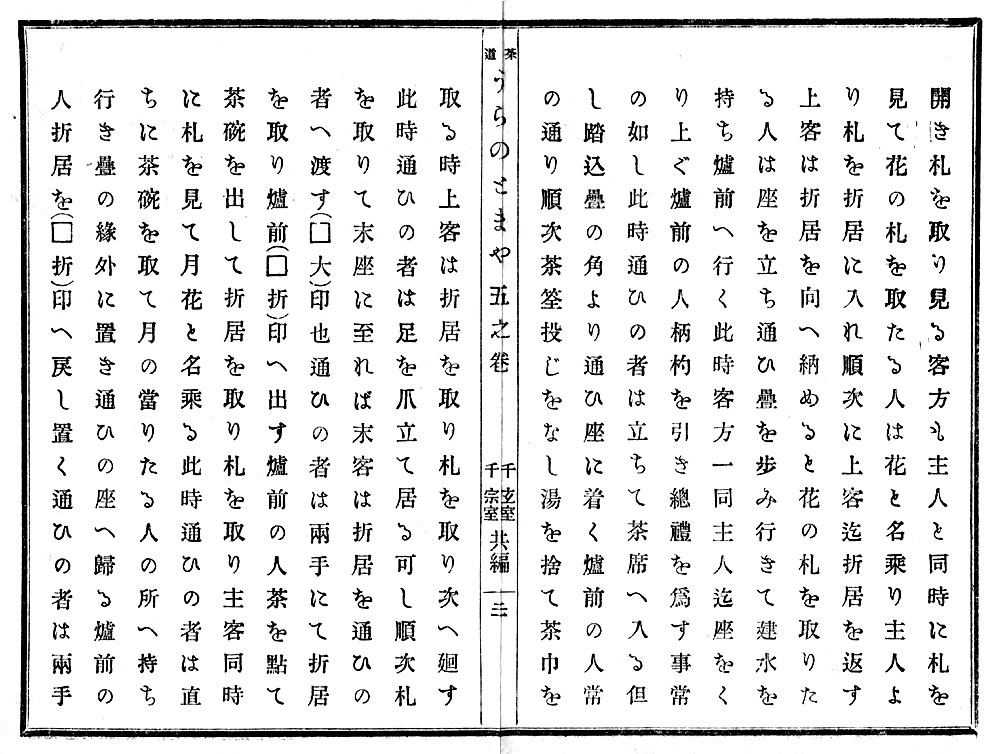 開き札を取り見る客方も主人と同時に札を
見て花の札を取たる人は花と名乘り主人よ
り札を折居に入れ順次に上客迄折居を返す
上客は折居を向へ納めると花の札を取りた
る人は座を立ち通ひ疊を步み行きて建水を
持ち爐前へ行く此時客方一同主人迄座をく
り上ぐ爐前の人柄杓を引き總禮を爲す事常
の如し此時通ひの者は立ちて茶席へ入る但
し踏込疊の角より通ひ座に着く爐前の人常
の通り順次茶筌投じをなし湯を捨て茶巾を
茶道 うらのとまや 五之卷 千玄室 千宗室 共編 二
取る時上客は折居を取り札を取り次へ廻す
此時通ひの者は足を爪立て居る可し順次札
を取りて末座に至れば末客は折居を通ひの
者へ渡す(□大)印也通ひの者は兩手にて折居
を取り爐前(□折)印へ出す爐前の人茶を點て
茶碗を出して折居を取り札を取り主客同時
に札を見て月花と名乘る此時通ひの者は直
ちに茶碗を取て月の當りたる人の所へ持ち
行き疊の緣外に置き通ひの座へ歸る爐前の
人折居を(□折)印へ戾し置く通ひの者は兩手